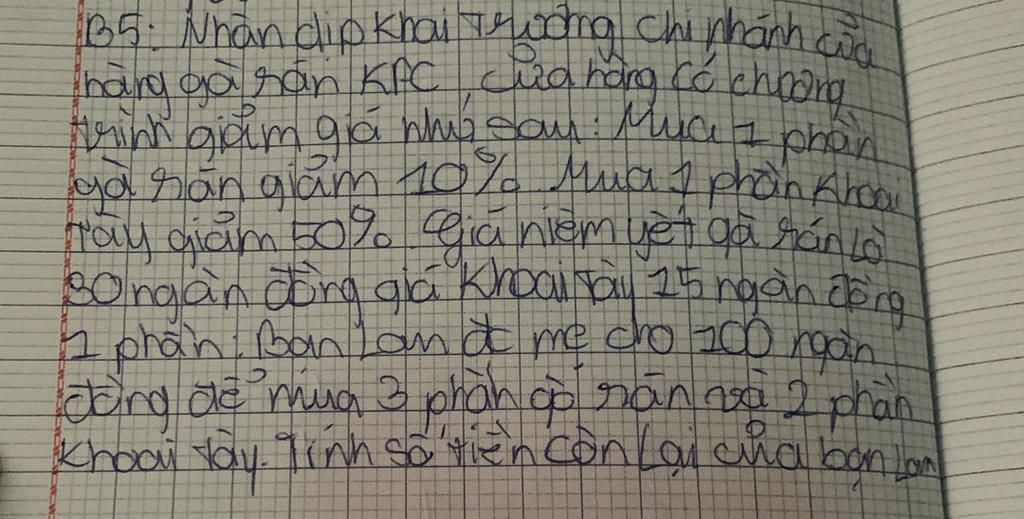 B5: Nhân dịp khai trương chi nhánh cửa
hàng gà rán KFC, cửa hàng có chương
trình giảm giá như sau: Mua 1 phần
gà rán giảm 10%. Mua 1 phần khoai
tây giảm 50%. Giá niêm yết gà rán là
30 ngàn đồng giá khoai tây 15 ngàn đồng
1 phần. Bạn Lan đc mẹ cho 100 ngàn
đồng để mua 3 phần gà rán và 2 phần
khoai tây. Tính số tiền còn lại của bạn Lan